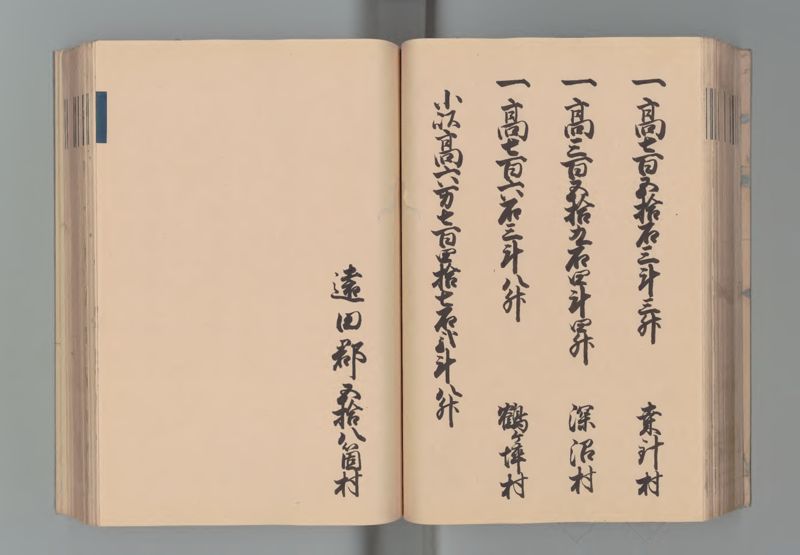 一高七百五拾石三斗三升 桒針村
一高三百五拾九石四斗四升 深沼村
一高七百六石三斗八升 鶴ヶ埣村
小以高六万七百四拾七石弐斗八升
遠田郡 五拾八箇村